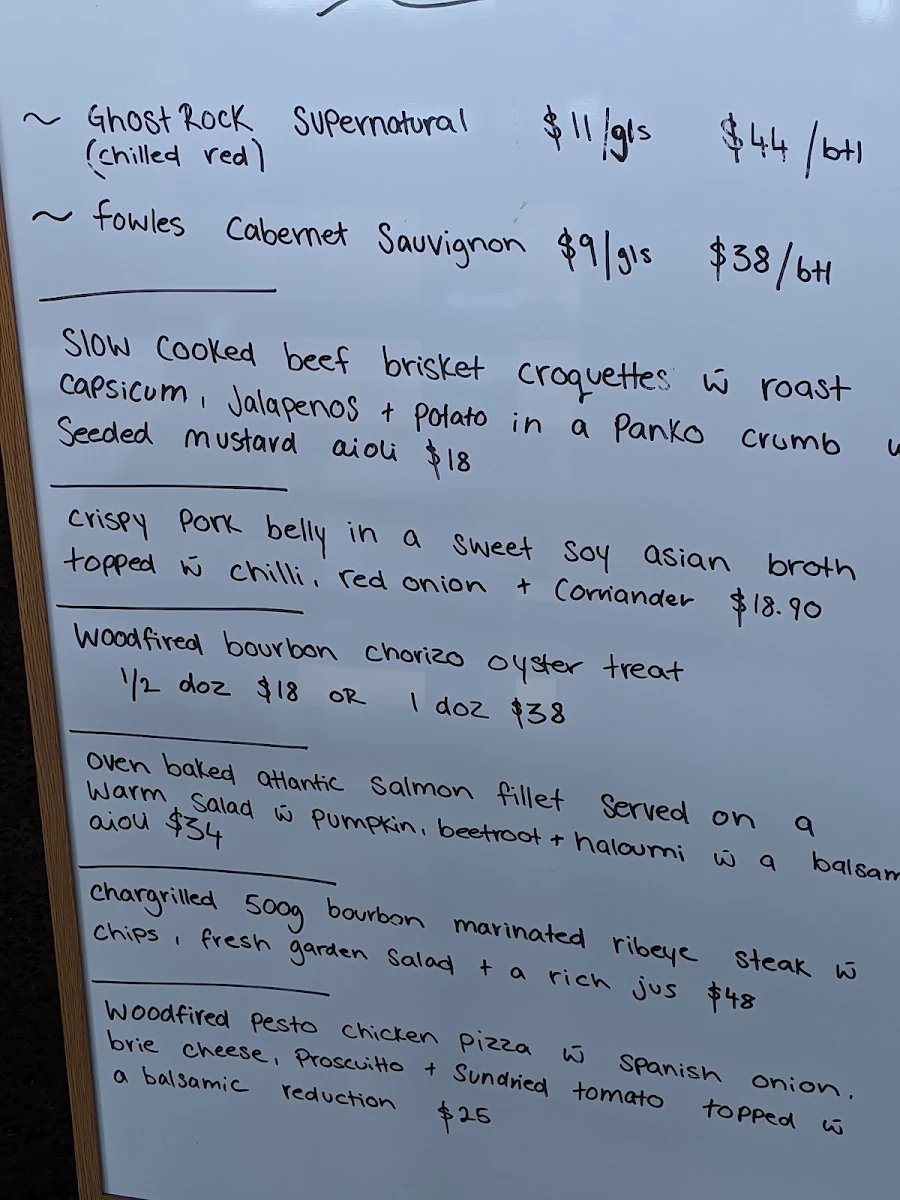 ~ Ghost Rock Supernatural $11/gls $44/btl
(chilled red)
~ fowles Cabernet Sauvignon $9/gls $38/btl
Slow cooked beef brisket croquettes w̄ roast
capsicum, Jalapenos + potato in a Panko crumb
Seeded mustard aioli $18
crispy pork belly in a sweet soy asian broth
topped w̄ chilli, red onion + Corriander $18.90
Woodfired bourbon chorizo oyster treat
1/2 doz $18 OR 1 doz $38
oven baked atlantic salmon fillet served on a
warm salad w̄ pumpkin, beetroot + haloumi w̄ a balsam
aioli $34
chargrilled 500g bourbon marinated ribeye steak w̄
chips, fresh garden salad + a rich jus $48
Woodfired pesto chicken pizza w̄ spanish onion.
brie cheese, Proscuitto + Sundried tomato topped w̄
a balsamic reduction $25